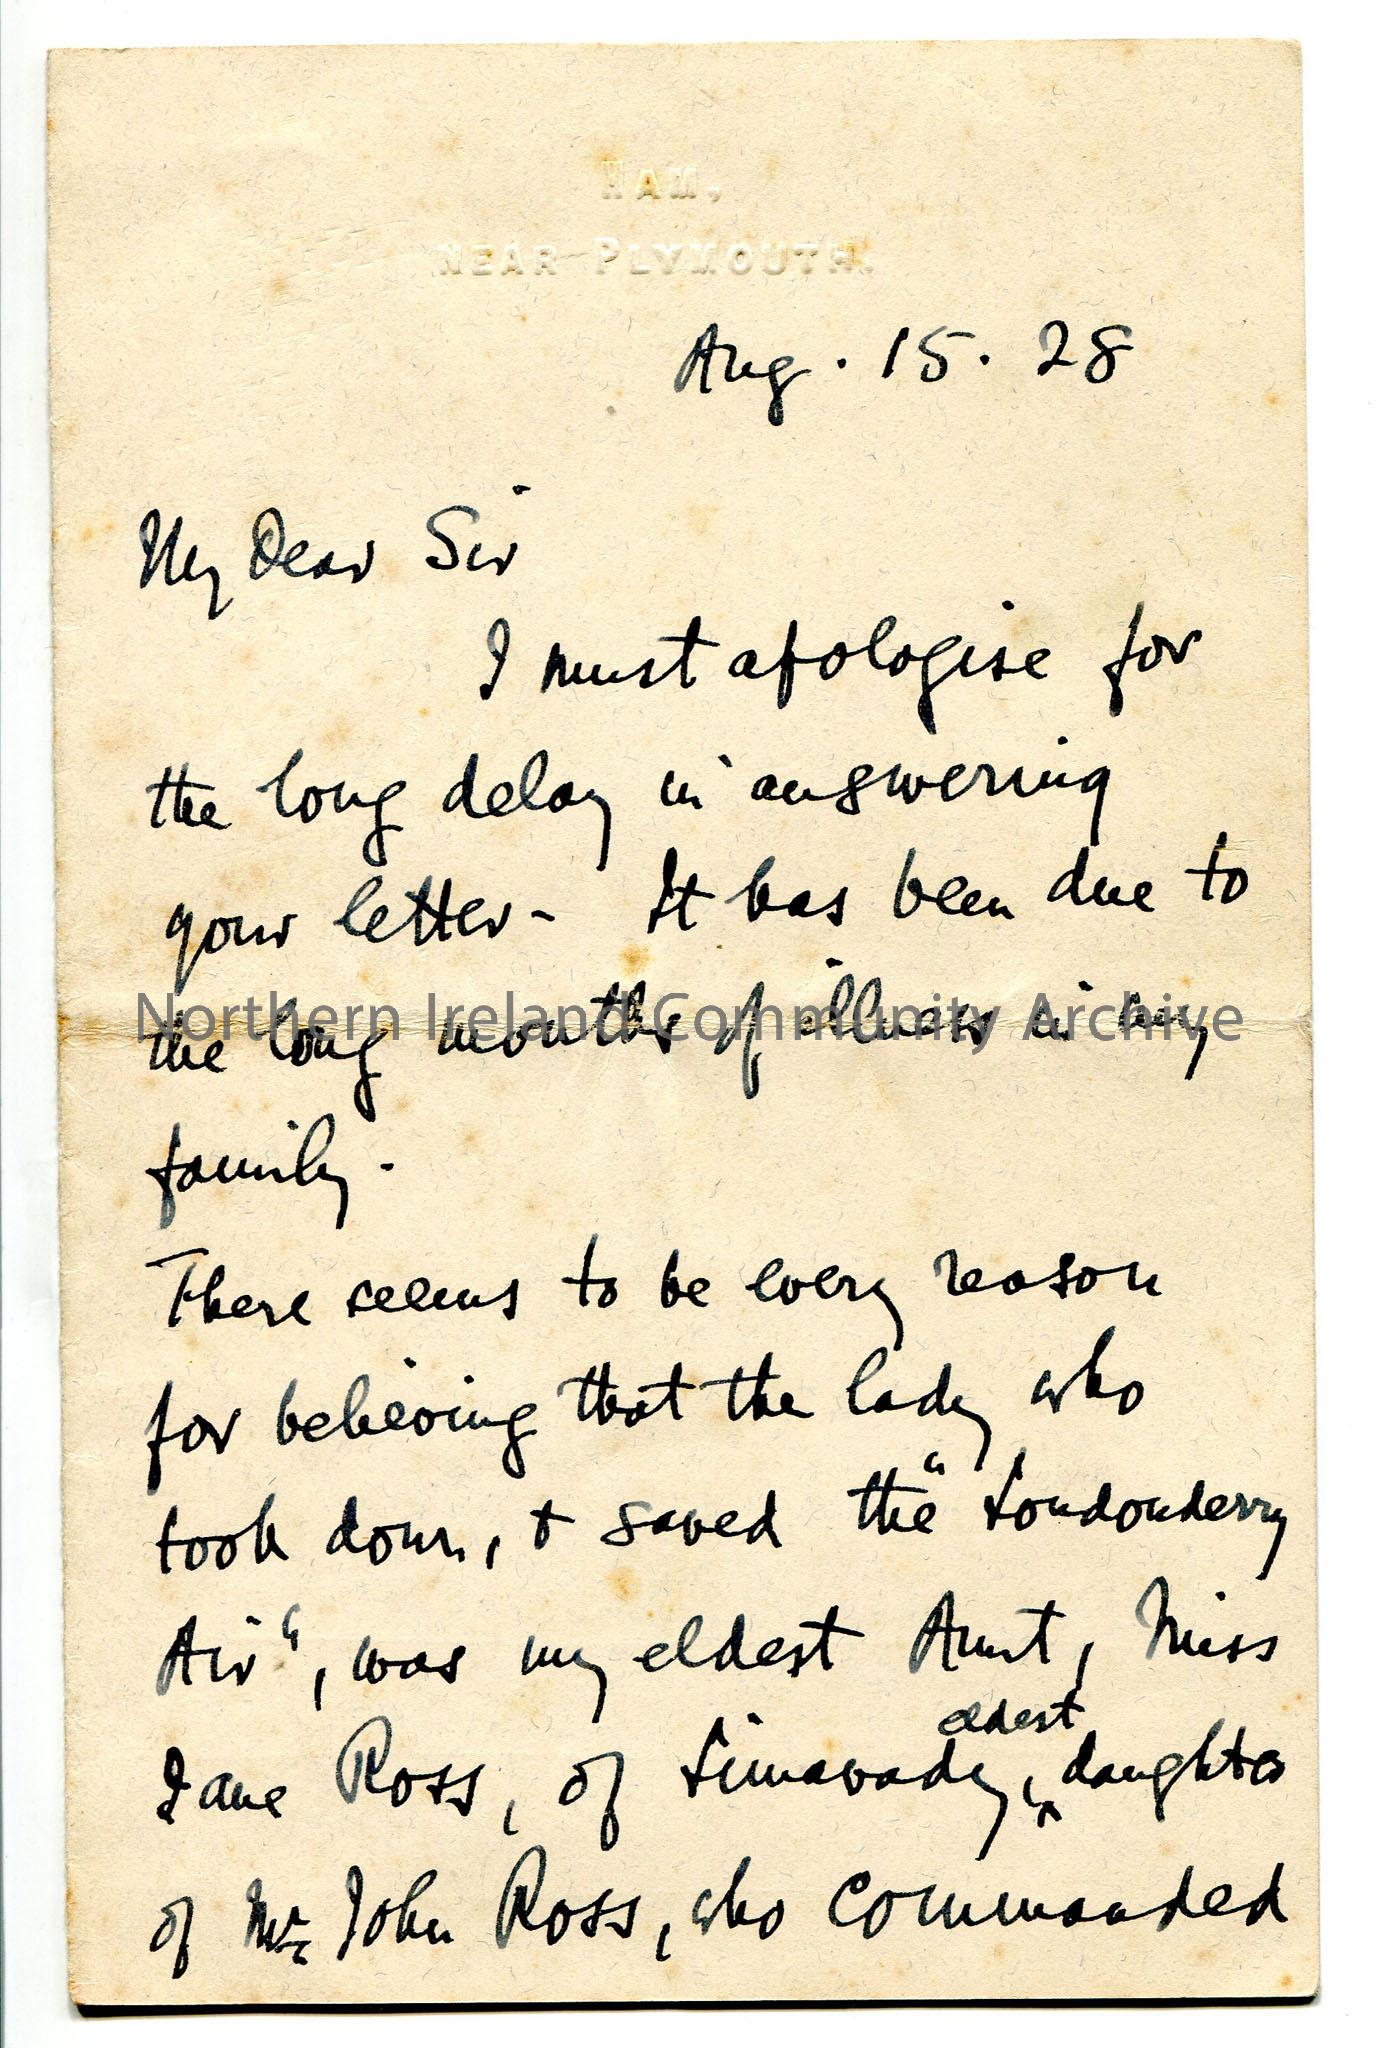 HAM,
NEAR PLYMOUTH.
Aug. 15. 28
My Dear Sir
I must apologise for
the long delay in answering
your letter - It has been due to
the long months of illness in my
Northern Ireland Community Archive
family.
There seems to be every reason
for believing that the lady who
took down, & saved the "Londonderry
Air", was my eldest Aunt, Miss
Jane Ross, of Limavady, eldest daughter
of Mr. John Ross, who commanded